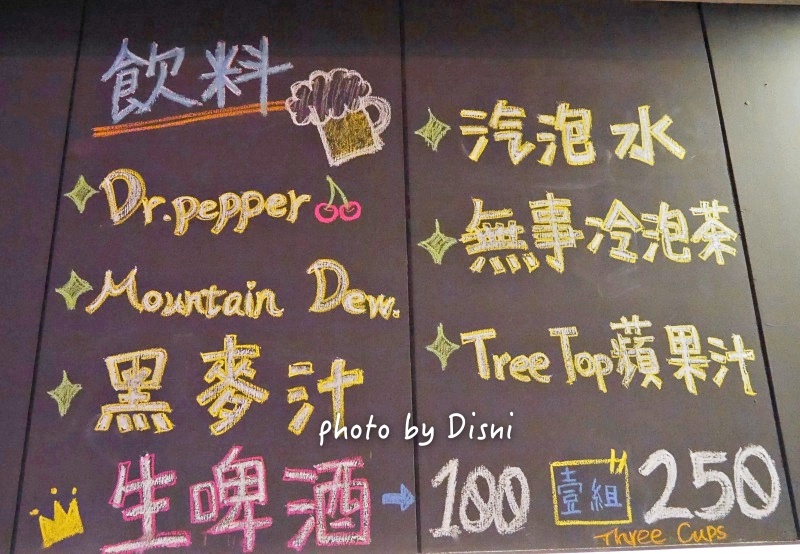 飲料
Dr.pepper
Mountain Dew.
黑麥汁
汽泡水
無事冷泡茶
Tree Top蘋果汁
生啤酒 → 100 壹組 250
Three Cups
photo by Disni